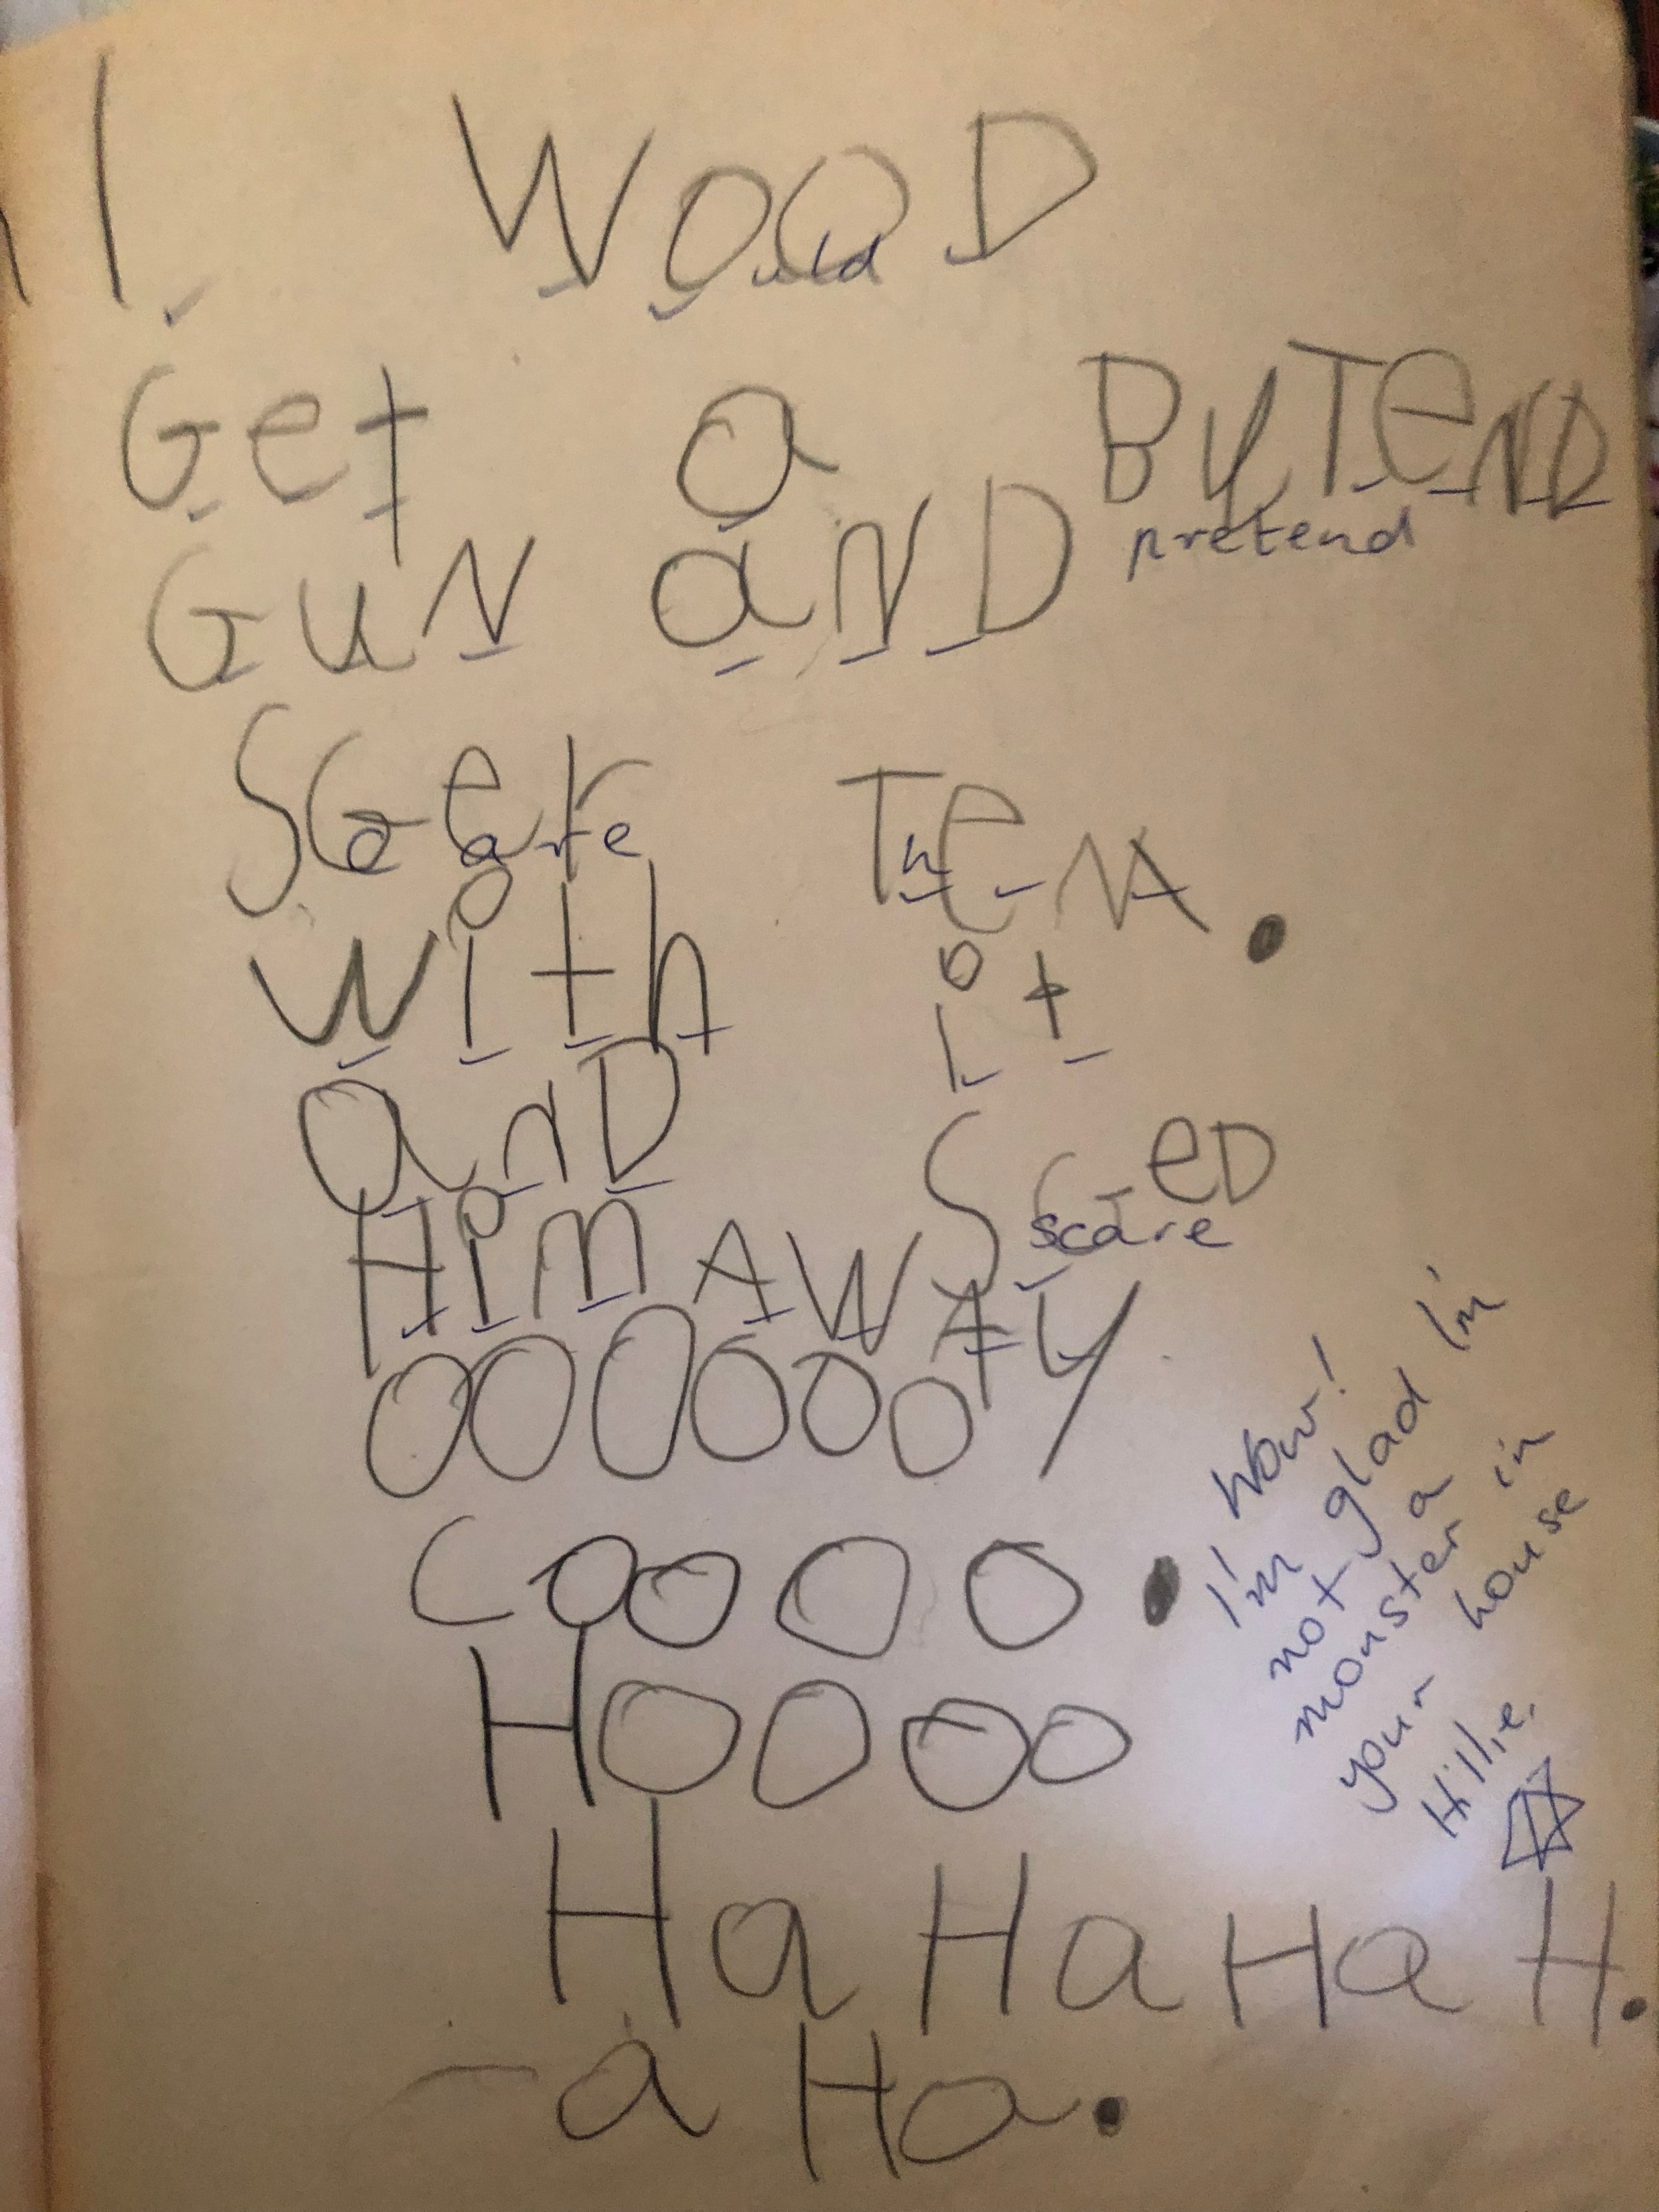 I WOOD
uld
Get a ByTeND
pretend
GuN aND
SGer TeM.
care h
With it
anD SGeD
scare
HiM AWAY
OOOOOO
COOOO.
HOOOO
HaHaHaH.
-a Ha.
Wow!
I'm glad I'm
not a
monster in
your house
Hillie.